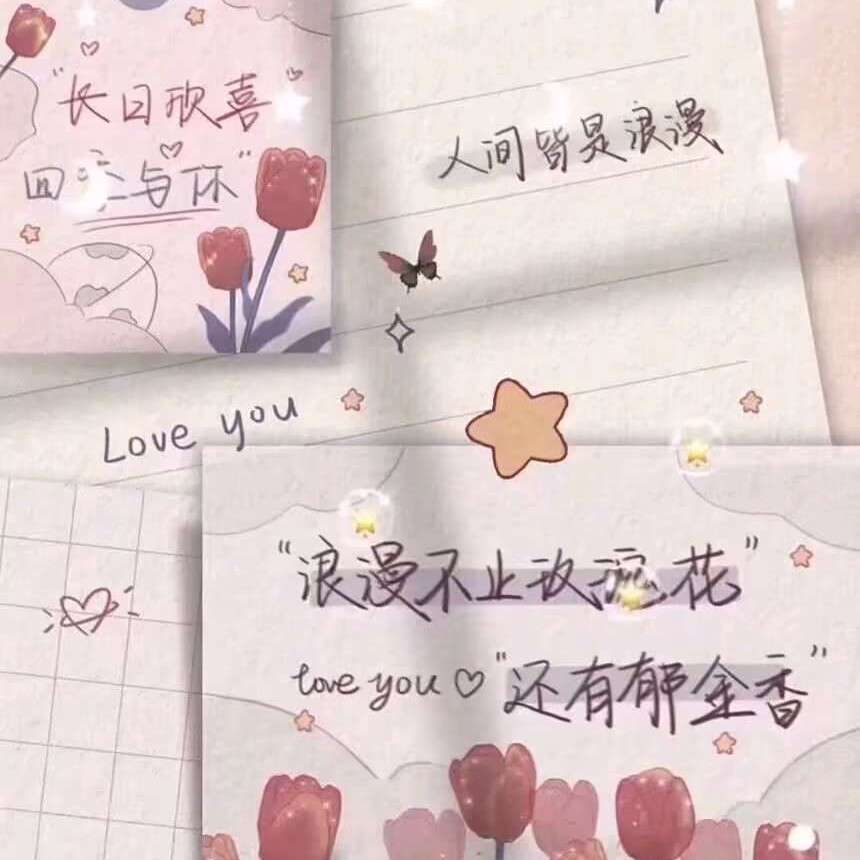 “长日欣喜
四季与你”
人间皆是浪漫
Love you
“浪漫不止玫瑰花”
love you♡“还有郁金香”